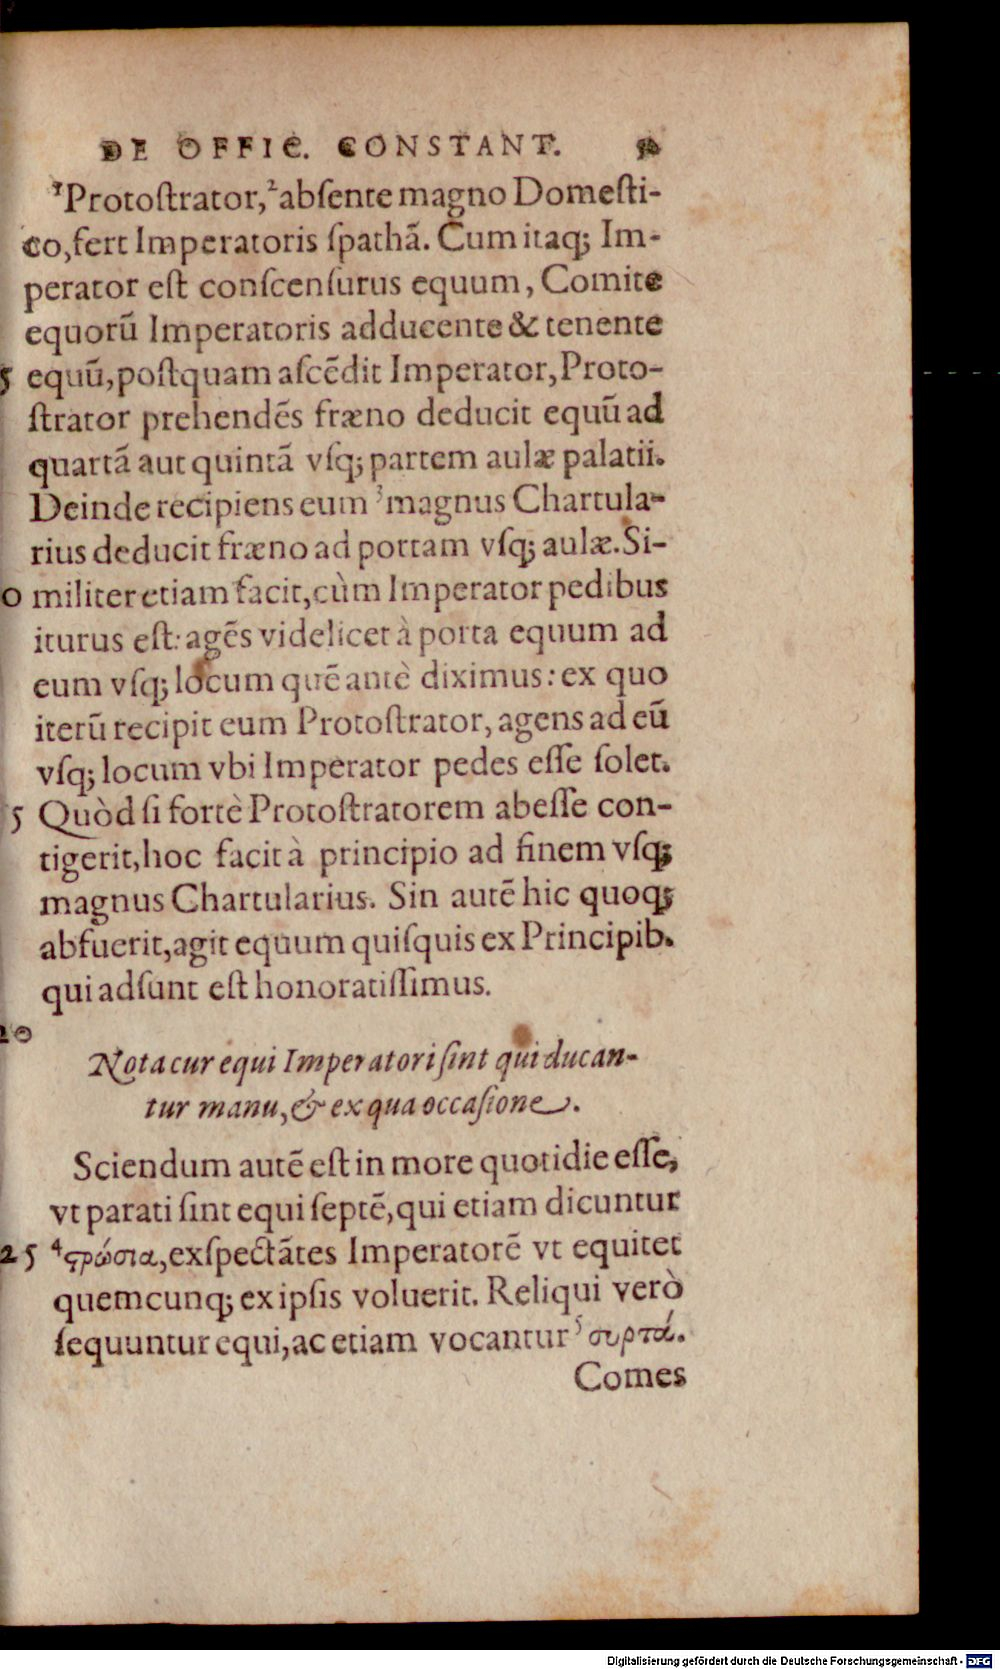 DE OFFIC. CONSTANT.
¹Protoſtrator,²abſente magno Domeſti-
co,fert Imperatoris ſpathã. Cum itaq; Im-
perator eſt conſcenſurus equum, Comite
equorũ Imperatoris adducente & tenente
5 equũ,poſtquam aſcẽdit Imperator,Proto-
ſtrator prehendẽs fræno deducit equũ ad
quartã aut quintã vſq; partem aulæ palatii.
Deinde recipiens eum ³magnus Chartula-
rius deducit fræno ad portam vſq; aulæ.Si-
0 militer etiam facit,cùm Imperator pedibus
iturus eſt: agẽs videlicet à porta equum ad
eum vſq; locum quẽ antè diximus: ex quo
iterũ recipit eum Protoſtrator, agens ad eũ
vſq; locum vbi Imperator pedes eſſe ſolet.
5 Quòd ſi fortè Protoſtratorem abeſſe con-
tigerit,hoc facit à principio ad finem vſq;
magnus Chartularius. Sin autẽ hic quoq;
abfuerit,agit equum quiſquis ex Principib.
qui adſunt eſt honoratiſſimus.
20
Nota cur equi Imperatori ſint qui ducan-
tur manu,& ex qua occaſione.
Sciendum autẽ eſt in more quotidie eſſe,
vt parati ſint equi ſeptẽ,qui etiam dicuntur
25 ⁴ϛρώσια,exſpectãtes Imperatorẽ vt equitet
quemcunq; ex ipſis voluerit. Reliqui verò
ſequuntur equi,ac etiam vocantur ⁵συρτά.
Comes
Digitalisierung gefördert durch die Deutsche Forschungsgemeinschaft - DFG